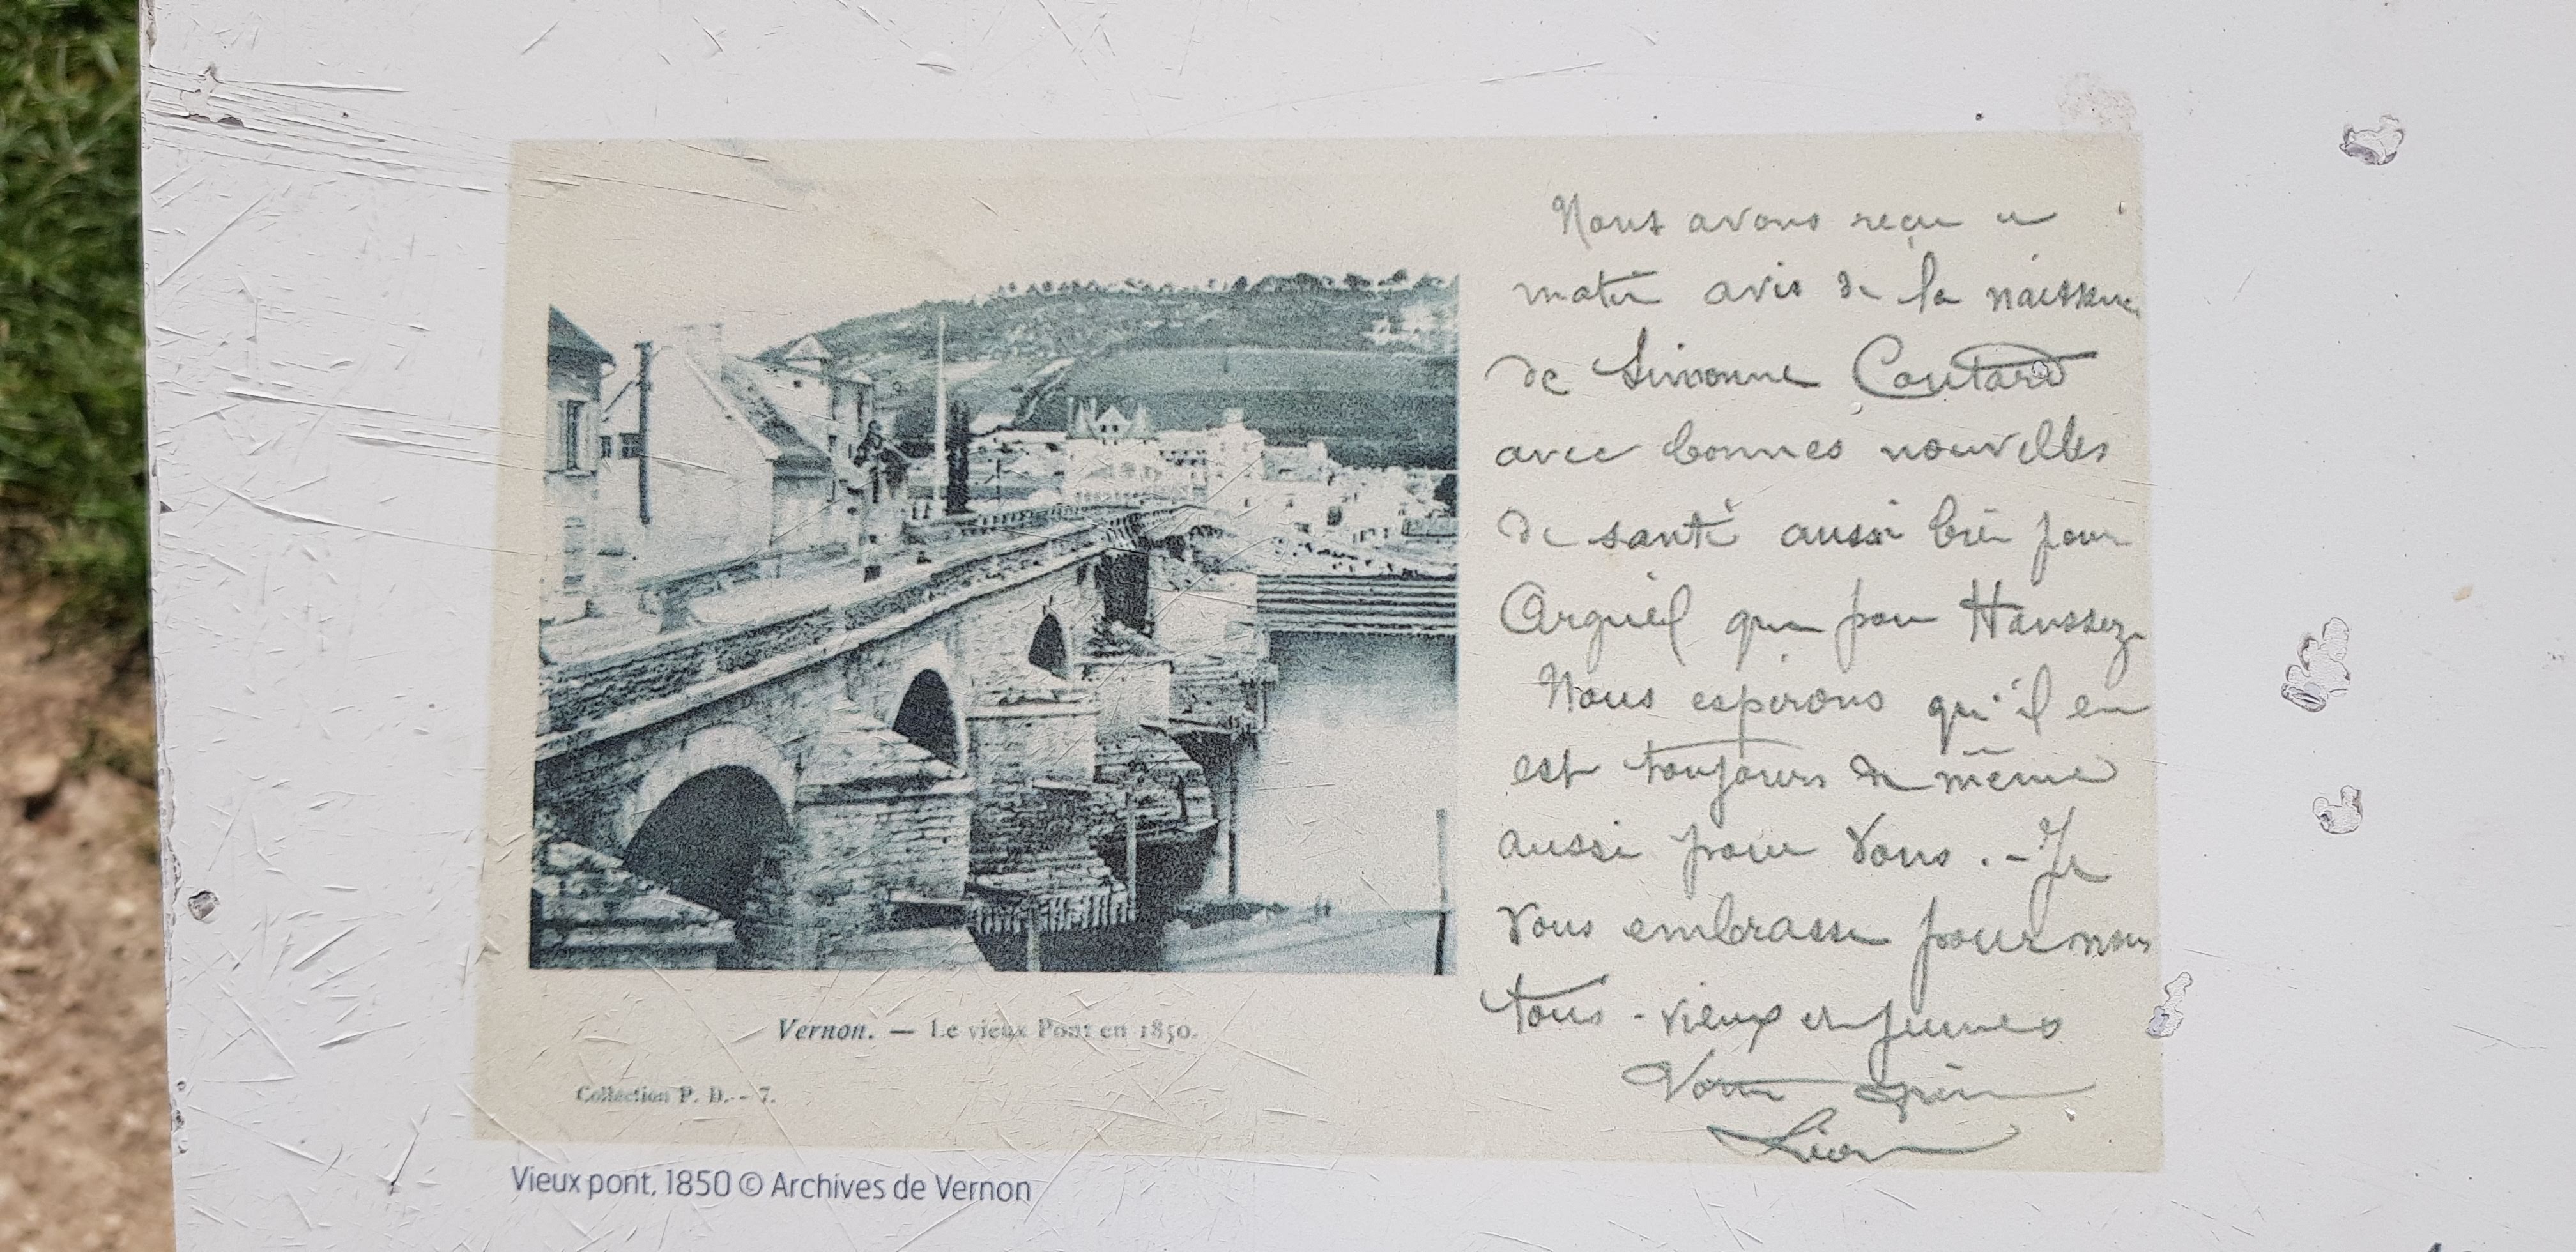 Vernon. — Le vieux Pont en 1850.
Collection P. D. - 7.
Nous avons reçu ce
matin avis de la naissance
de Simonne Coutard
avec bonnes nouvelles
de santé aussi bien pour
Argueil que pour Haussez
Nous espérons qu'il en
est toujours de même
aussi pour vous. - Je
vous embrasse pour nous
tous - vieux et jeunes
Votre
Léon
Vieux pont, 1850 © Archives de Vernon